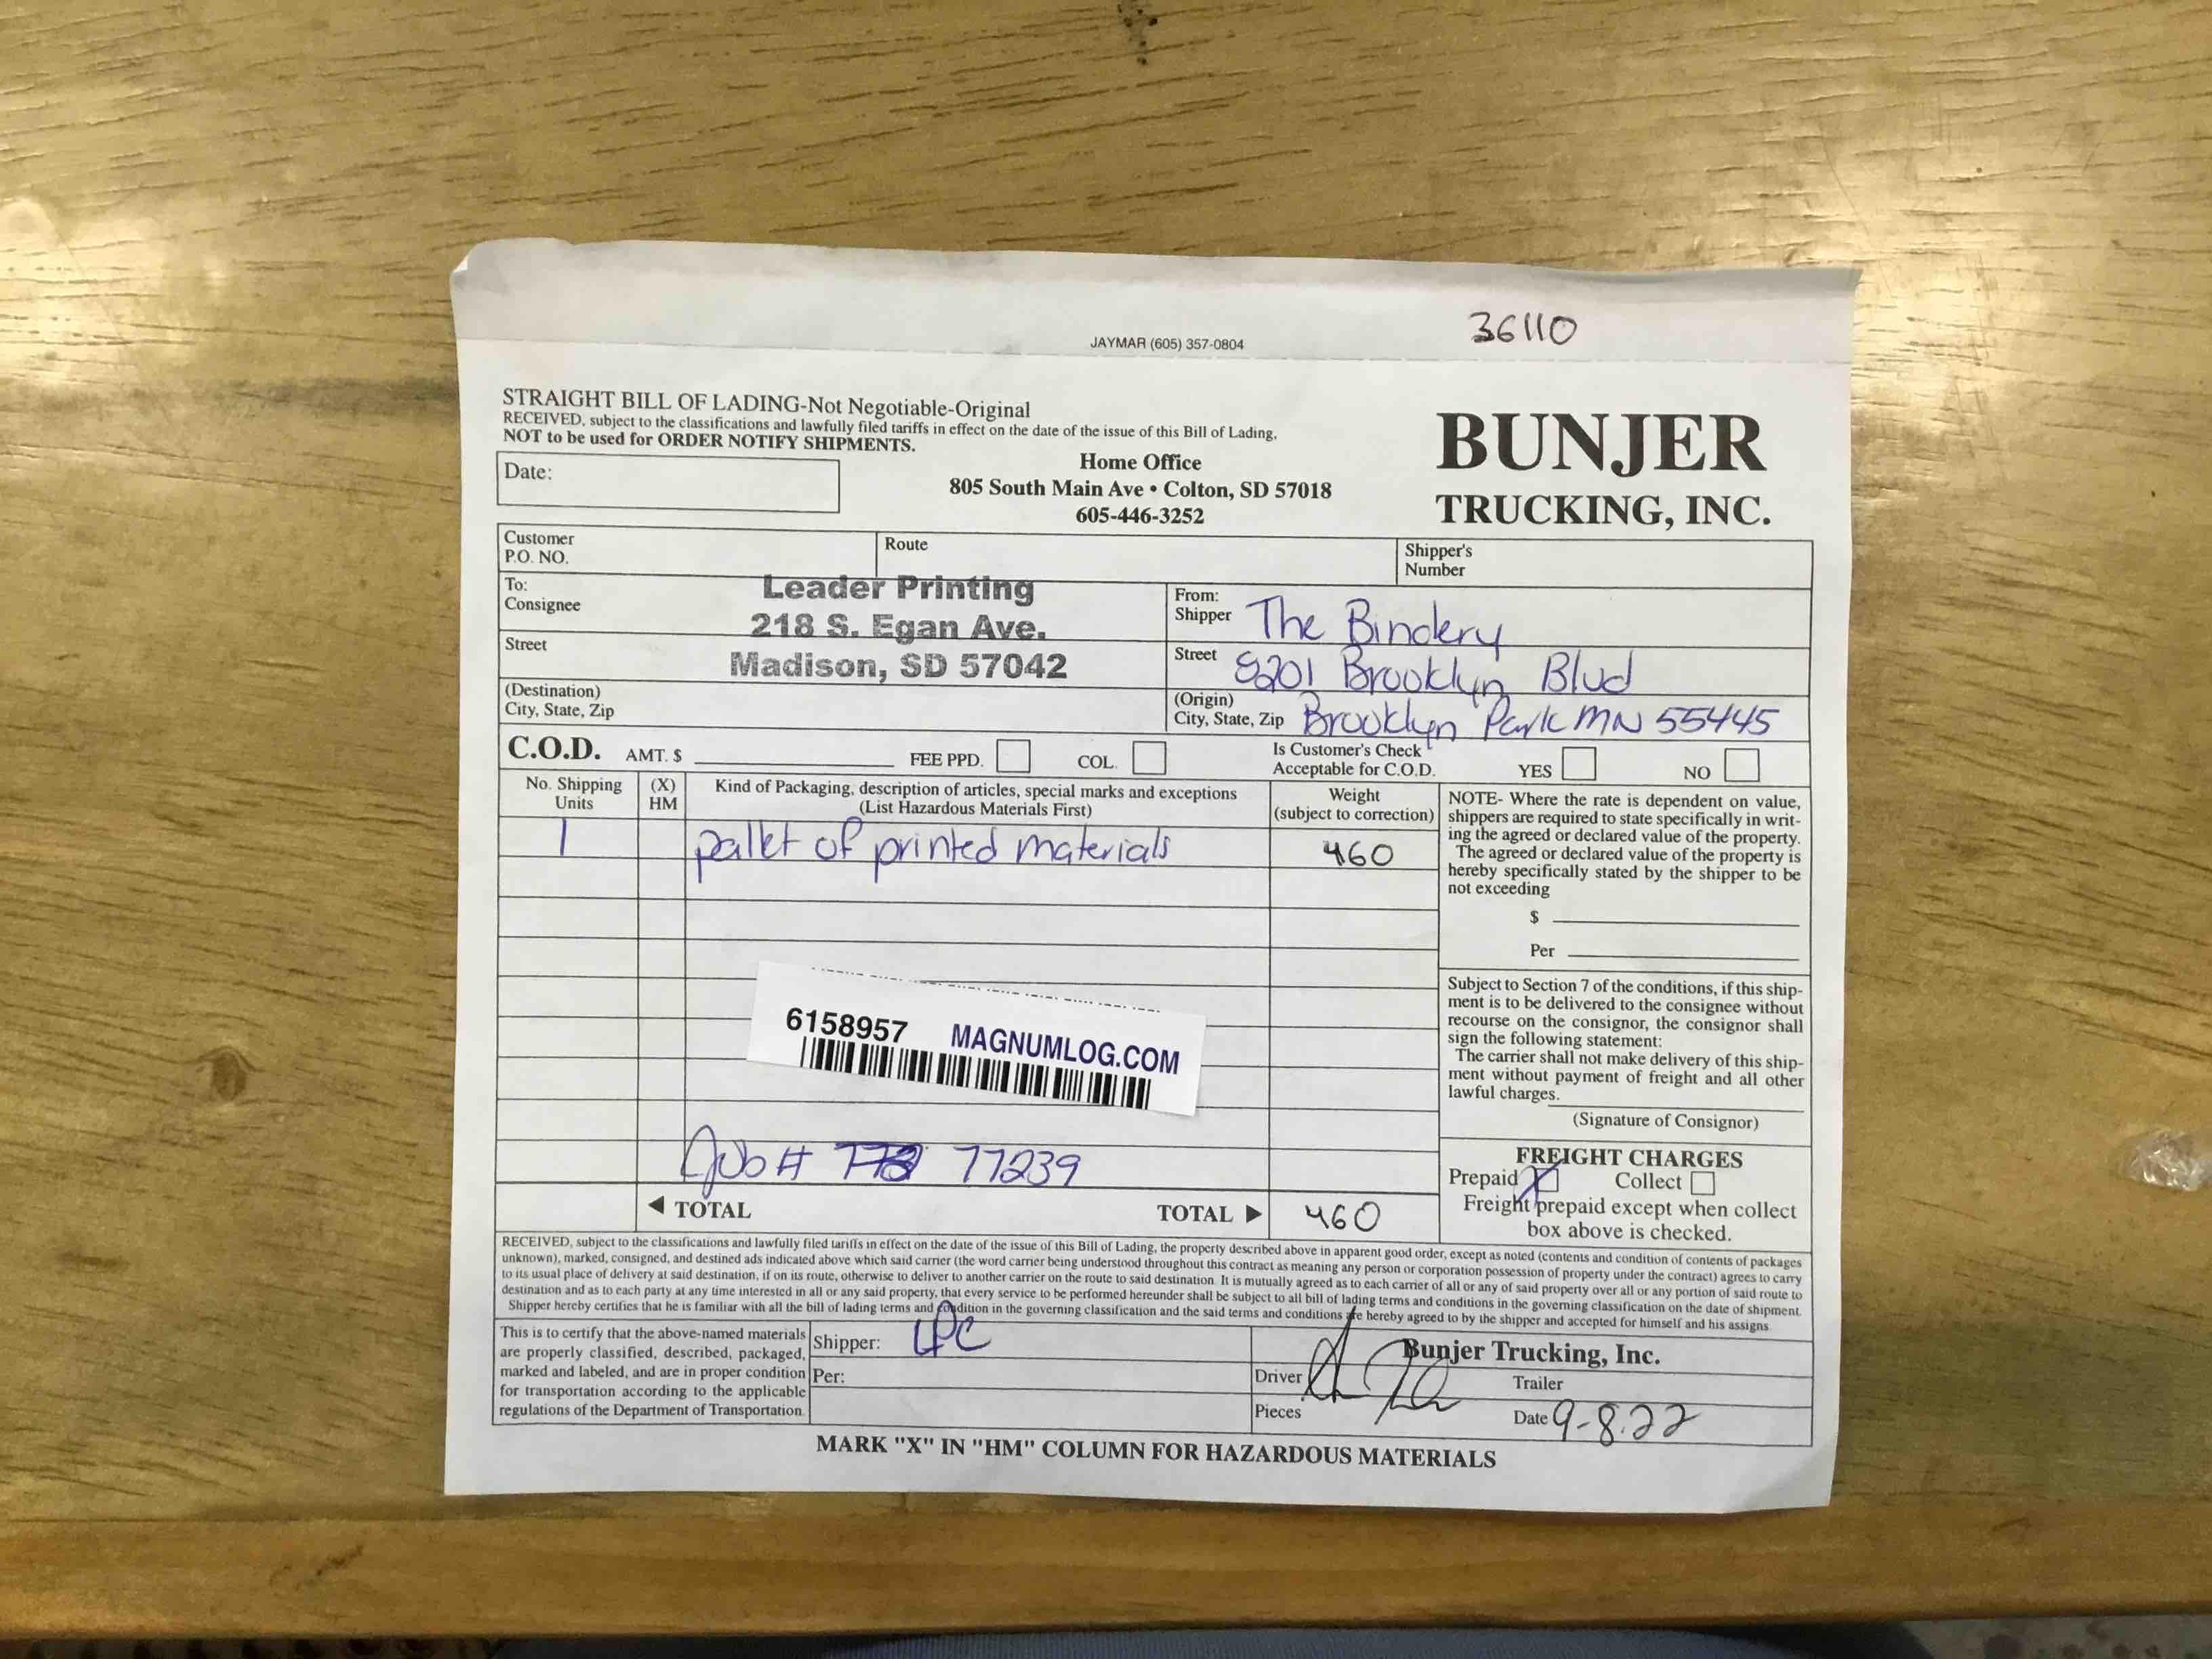 36110
JAYMAR (605) 357-0804
STRAIGHT BILL OF LADING-Not Negotiable-Original
RECEIVED, subject to the classifications and lawfully filed tariffs in effect on the date of the issue of this Bill of Lading,
NOT to be used for ORDER NOTIFY SHIPMENTS.
Date:
Home Office
805 South Main Ave • Colton, SD 57018
605-446-3252
BUNJER
TRUCKING, INC.
Customer
P.O. NO.
Route
Shipper's
Number
To:
Consignee
Leader Printing
218 S. Egan Ave.
Madison, SD 57042
Street
(Destination)
City, State, Zip
From:
Shipper The Bindery
Street 8201 Brooklyn Blvd
(Origin)
City, State, Zip Brooklyn Park MN 55445
C.O.D. AMT. $ FEE PPD. COL.
Is Customer's Check
Acceptable for C.O.D. YES NO
No. Shipping
Units
(X)
HM
Kind of Packaging, description of articles, special marks and exceptions
(List Hazardous Materials First)
Weight
(subject to correction)
1 pallet of printed materials 460
6158957 MAGNUMLOG.COM
Job # 77239
TOTAL TOTAL 460
NOTE- Where the rate is dependent on value,
shippers are required to state specifically in writ-
ing the agreed or declared value of the property.
The agreed or declared value of the property is
hereby specifically stated by the shipper to be
not exceeding
$
Per
Subject to Section 7 of the conditions, if this ship-
ment is to be delivered to the consignee without
recourse on the consignor, the consignor shall
sign the following statement:
The carrier shall not make delivery of this ship-
ment without payment of freight and all other
lawful charges.
(Signature of Consignor)
FREIGHT CHARGES
Prepaid X Collect
Freight prepaid except when collect
box above is checked.
RECEIVED, subject to the classifications and lawfully filed tariffs in effect on the date of the issue of this Bill of Lading, the property described above in apparent good order, except as noted (contents and condition of contents of packages
unknown), marked, consigned, and destined ads indicated above which said carrier (the word carrier being understood throughout this contract as meaning any person or corporation possession of property under the contract) agrees to carry
to its usual place of delivery at said destination, if on its route, otherwise to deliver to another carrier on the route to said destination. It is mutually agreed as to each carrier of all or any of said property over all or any portion of said route to
destination and as to each party at any time interested in all or any said property, that every service to be performed hereunder shall be subject to all bill of lading terms and conditions in the governing classification on the date of shipment.
Shipper hereby certifies that he is familiar with all the bill of lading terms and condition in the governing classification and the said terms and conditions are hereby agreed to by the shipper and accepted for himself and his assigns.
This is to certify that the above-named materials
are properly classified, described, packaged,
marked and labeled, and are in proper condition
for transportation according to the applicable
regulations of the Department of Transportation.
Shipper: LPC
Per:
Bunjer Trucking, Inc.
Driver
Trailer
Pieces
Date 9-8.22
MARK "X" IN "HM" COLUMN FOR HAZARDOUS MATERIALS